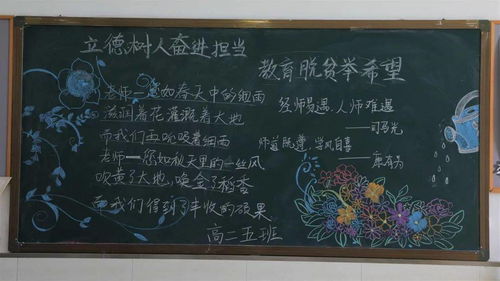 立德树人奋进担当
老师—您如春天中的细雨
滋润着花灌溉着大地
而我们在吮吸着细雨
老师—您如秋天里的一丝风
吹黄了大地,唤金了稻香
而我们得到了丰收的硕果
高二五班
教育脱贫举希望
经师易遇,人师难遇
——司马光
师道既尊,学风自善
——康有为